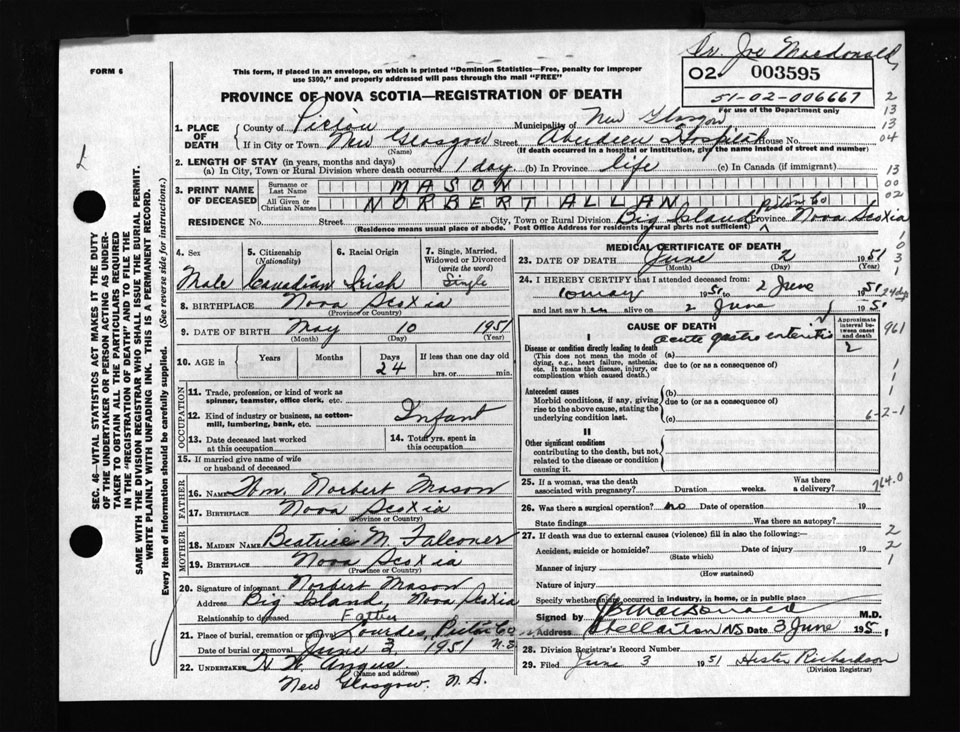 Dr. Joe Macdonald
FORM 6
This form, if placed in an envelope, on which is printed "Dominion Statistics—Free, penalty for improper use $300," and properly addressed will pass through the mail "FREE"
02 003595
51-02-006667
For use of the Department only
PROVINCE OF NOVA SCOTIA—REGISTRATION OF DEATH
1. PLACE OF DEATH County of Pictou Municipality of New Glasgow
If in City or Town New Glasgow Street Aberdeen Hospital House No.
(Name) (If death occurred in a hospital or institution, give the name instead of street and number)
2. LENGTH OF STAY (in years, months and days)
(a) In City, Town or Rural Division where death occurred 1 day (b) In Province life (c) In Canada (if immigrant)
3. PRINT NAME OF DECEASED Surname or Last Name MASON
All Given or Christian Names NORBERT ALLAN
RESIDENCE No. Street City, Town or Rural Division Big Island Pictou Co Province Nova Scotia
(Residence means usual place of abode. Post Office Address for residents in rural parts not sufficient)
4. Sex Male
5. Citizenship (Nationality) Canadian
6. Racial Origin Irish
7. Single, Married, Widowed or Divorced (write the word) Single
8. BIRTHPLACE Nova Scotia
(Province or Country)
9. DATE OF BIRTH May 10 1951
(Month) (Day) (Year)
10. AGE in Years Months Days 24 If less than one day old hrs. or min.
OCCUPATION
11. Trade, profession, or kind of work as spinner, teamster, office clerk, etc.
12. Kind of industry or business, as cotton-mill, lumbering, bank, etc. Infant
13. Date deceased last worked at this occupation
14. Total yrs. spent in this occupation
15. If married give name of wife or husband of deceased
FATHER
16. NAME Wm. Norbert Mason
17. BIRTHPLACE Nova Scotia
(Province or Country)
MOTHER
18. MAIDEN NAME Beatrice M. Falconer
19. BIRTHPLACE Nova Scotia
(Province or Country)
20. Signature of informant Norbert Mason
Address Big Island, Nova Scotia
Relationship to deceased Father
21. Place of burial, cremation or removal Lourdes, Pictou Co N.S.
Date of burial or removal June 3, 1951
22. UNDERTAKER H. W. Angus
(Name and address)
New Glasgow. N.S.
MEDICAL CERTIFICATE OF DEATH
23. DATE OF DEATH June 2 1951
(Month) (Day) (Year)
24. I HEREBY CERTIFY that I attended deceased from:
1951 to 2 June 1951
and last saw h alive on 2 June 1951
CAUSE OF DEATH
Approximate interval between onset and death
I
Disease or condition directly leading to death (a) acute gastro enteritis 2
(This does not mean the mode of dying, e.g., heart failure, asthenia, etc. It means the disease, injury, or complication which caused death.)
due to (or as a consequence of)
Antecedent causes (b)
Morbid conditions, if any, giving rise to the above cause, stating the underlying condition last.
due to (or as a consequence of)
(c)
II
Other significant conditions
contributing to the death, but not related to the disease or condition causing it.
25. If a woman, was the death associated with pregnancy? Duration weeks. Was there a delivery?
26. Was there a surgical operation? no Date of operation 19
State findings Was there an autopsy?
27. If death was due to external causes (violence) fill in also the following:—
Accident, suicide or homicide? Date of injury 19
(State which)
Manner of injury
(How sustained)
Nature of injury
Specify whether injury occurred in industry, in home, or in public place
Signed by J B MacDonald M.D.
Address Stellarton NS Date 3 June 1951
28. Division Registrar's Record Number
29. Filed June 3 1951 Hester Richardson
(Division Registrar)
2
13
13
04
13
00
02
1
0
3
961
1
1
1
6-2-1
764.0
2
2
1
SEC. 46—VITAL STATISTICS ACT MAKES IT THE DUTY OF THE UNDERTAKER OR PERSON ACTING AS UNDERTAKER TO OBTAIN ALL THE PARTICULARS REQUIRED IN THE "REGISTRATION OF DEATH" AND TO FILE THE SAME WITH THE DIVISION REGISTRAR WHO SHALL ISSUE THE BURIAL PERMIT.
WRITE PLAINLY WITH UNFADING INK. THIS IS A PERMANENT RECORD.
Every item of information should be carefully supplied. (See reverse side for instructions.)